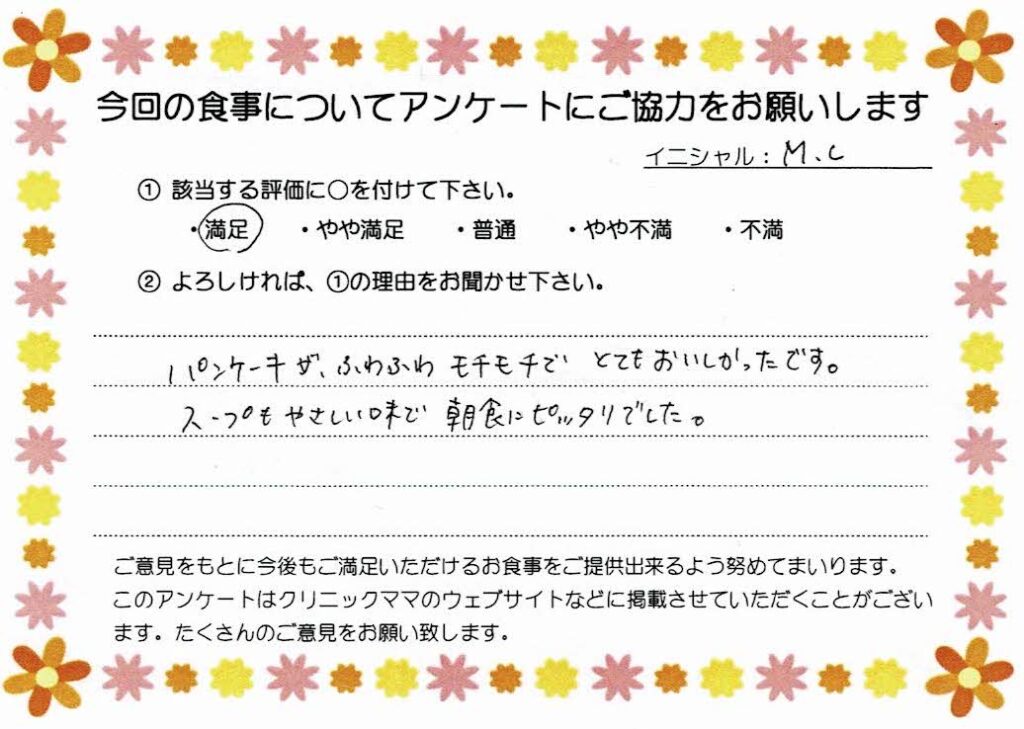 今回の食事についてアンケートにご協力をお願いします
イニシャル：M.C
① 該当する評価に○を付けて下さい。
・満足 ・やや満足 ・普通 ・やや不満 ・不満
② よろしければ、①の理由をお聞かせ下さい。
パンケーキが、ふわふわ モチモチで とてもおいしかったです。
スープも やさしい味で 朝食にピッタリでした。
ご意見をもとに今後もご満足いただけるお食事をご提供出来るよう努めてまいります。
このアンケートはクリニックママのウェブサイトなどに掲載させていただくことがござい
ます。たくさんのご意見をお願い致します。